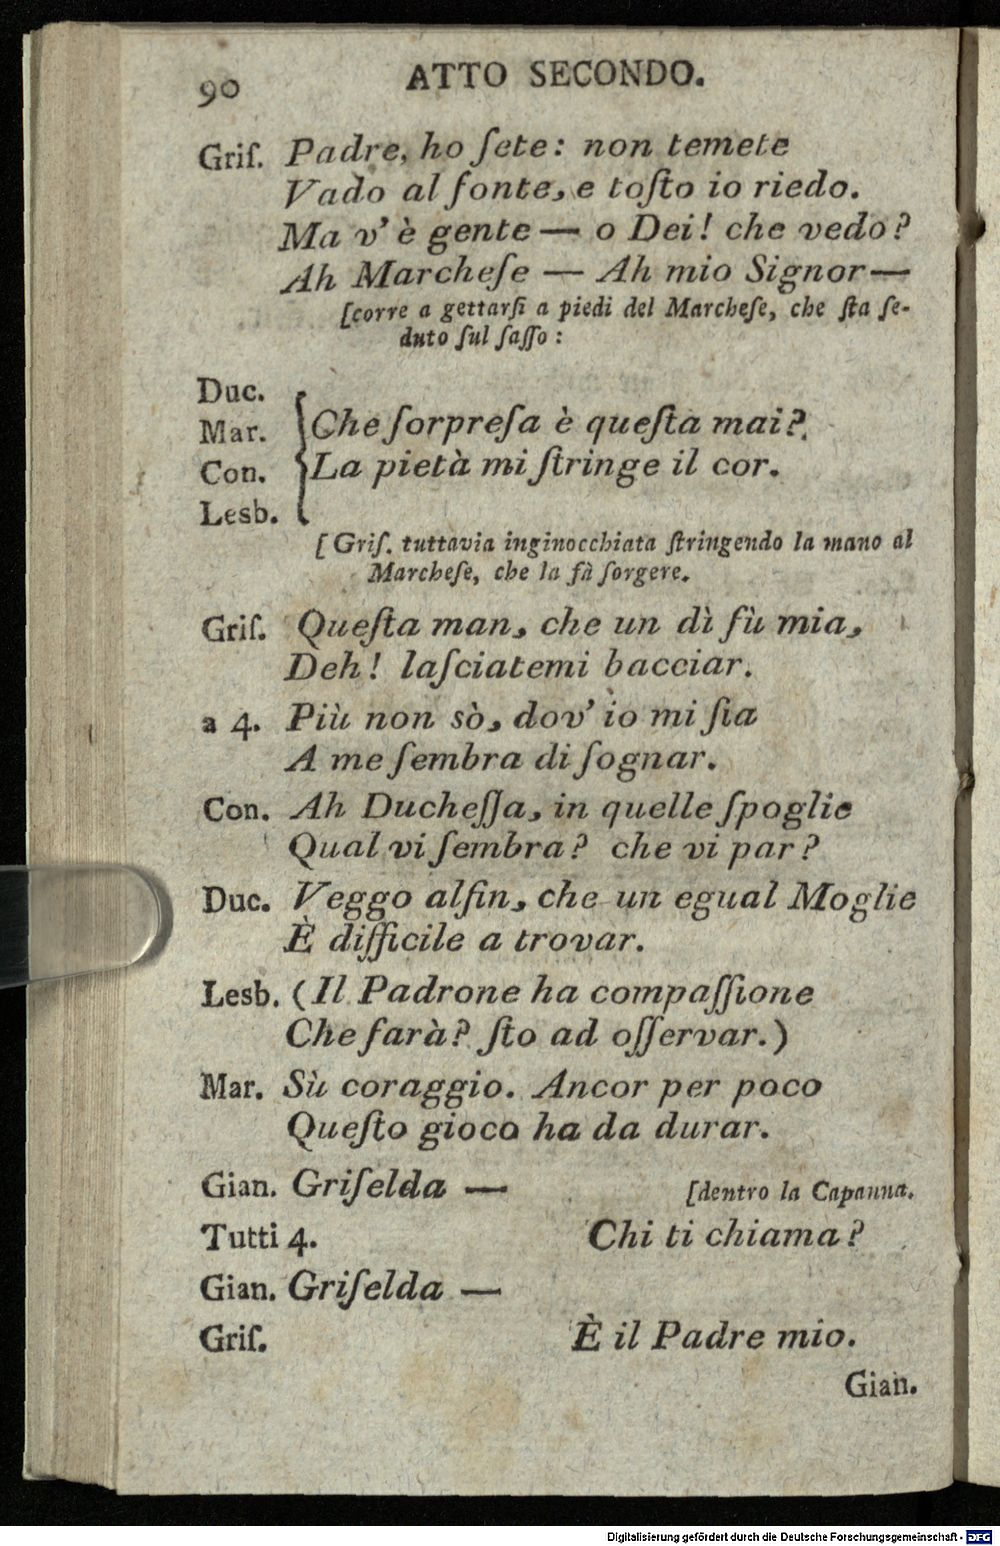 90 ATTO SECONDO.
Griſ. Padre, ho ſete: non temete
Vado al fonte, e toſto io riedo.
Ma v' è gente — o Dei! che vedo?
Ah Marcheſe — Ah mio Signor —
[corre a gettarſi a piedi del Marcheſe, che ſta ſe-
duto ſul ſaſſo:
Duc.
Mar. Che ſorpreſa è queſta mai?
Con. La pietà mi ſtringe il cor.
Lesb.
[Griſ. tuttavia inginocchiata ſtringendo la mano al
Marcheſe, che la fà ſorgere.
Griſ. Queſta man, che un dì fù mia,
Deh! laſciatemi bacciar.
a 4. Più non sò, dov' io mi ſia
A me ſembra di ſognar.
Con. Ah Ducheſſa, in quelle ſpoglie
Qual vi ſembra? che vi par?
Duc. Veggo alfin, che un egual Moglie
È difficile a trovar.
Lesb. (Il Padrone ha compaſſione
Che farà? ſto ad oſſervar.)
Mar. Sù coraggio. Ancor per poco
Queſto gioco ha da durar.
Gian. Griſelda — [dentro la Capanna.
Tutti 4. Chi ti chiama?
Gian. Griſelda —
Griſ. È il Padre mio.
Gian.
Digitalisierung gefördert durch die Deutsche Forschungsgemeinschaft - DFG